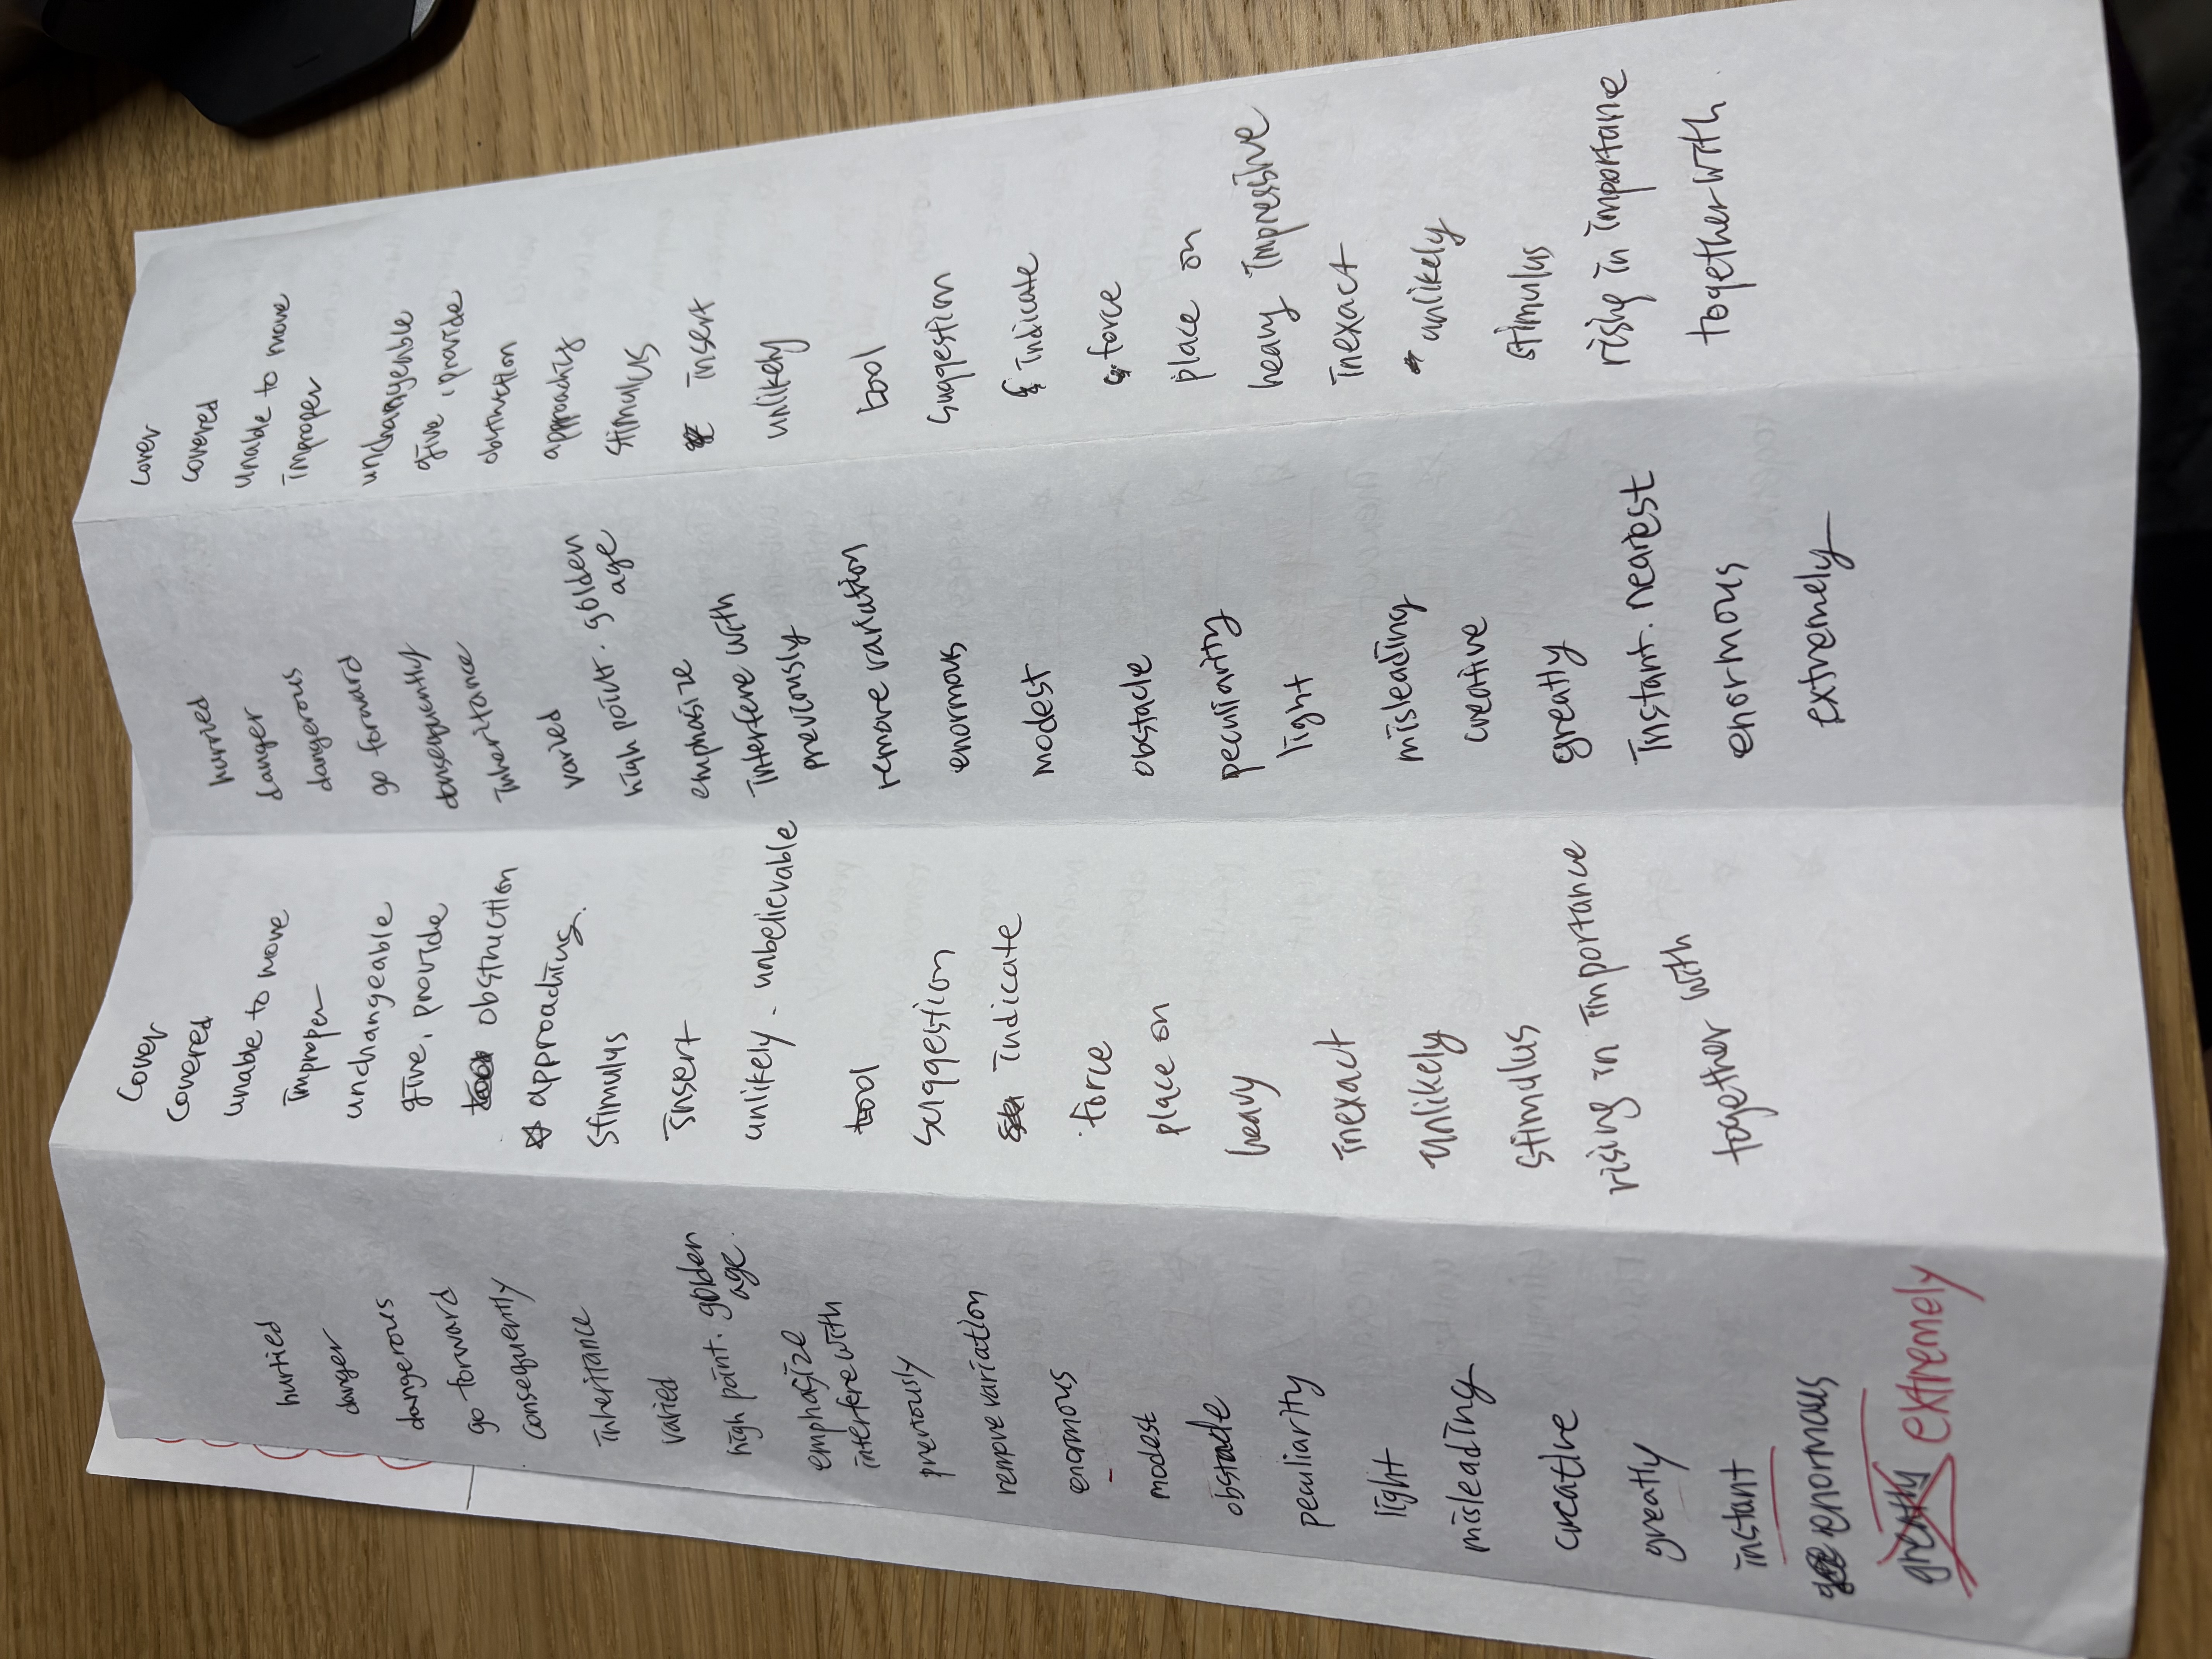 hurried
danger
dangerous
go forward
consequently
inheritance
varied
high point. golden
age.
emphasize
interfere with
previously
remove variation
enormous
modest
obstacle
peculiarity
light
misleading
creative
greatly
instant
enormous
greatly extremely
cover
covered
unable to move
improper
unchangeable
give, provide
obstruction
approaching.
stimulus
insert
unlikely - unbelievable
tool
suggestion
indicate
force
place on
heavy
inexact
unlikely
stimulus
rising in importance
together with
hurried
danger
dangerous
go forward
consequently
inheritance
varied
high point. golden
age
emphasize
interfere with
previously
remove variation
enormous
modest
obstacle
peculiarity
light
misleading
creative
greatly
instant. nearest
enormous
extremely
cover
covered
unable to move
improper
unchangeable
give, provide
obstruction
approachig
stimulus
insert
unlikely
tool
suggestion
indicate
force
place on
heavy impressive
inexact
unlikely
stimulus
rising in importane
together with.